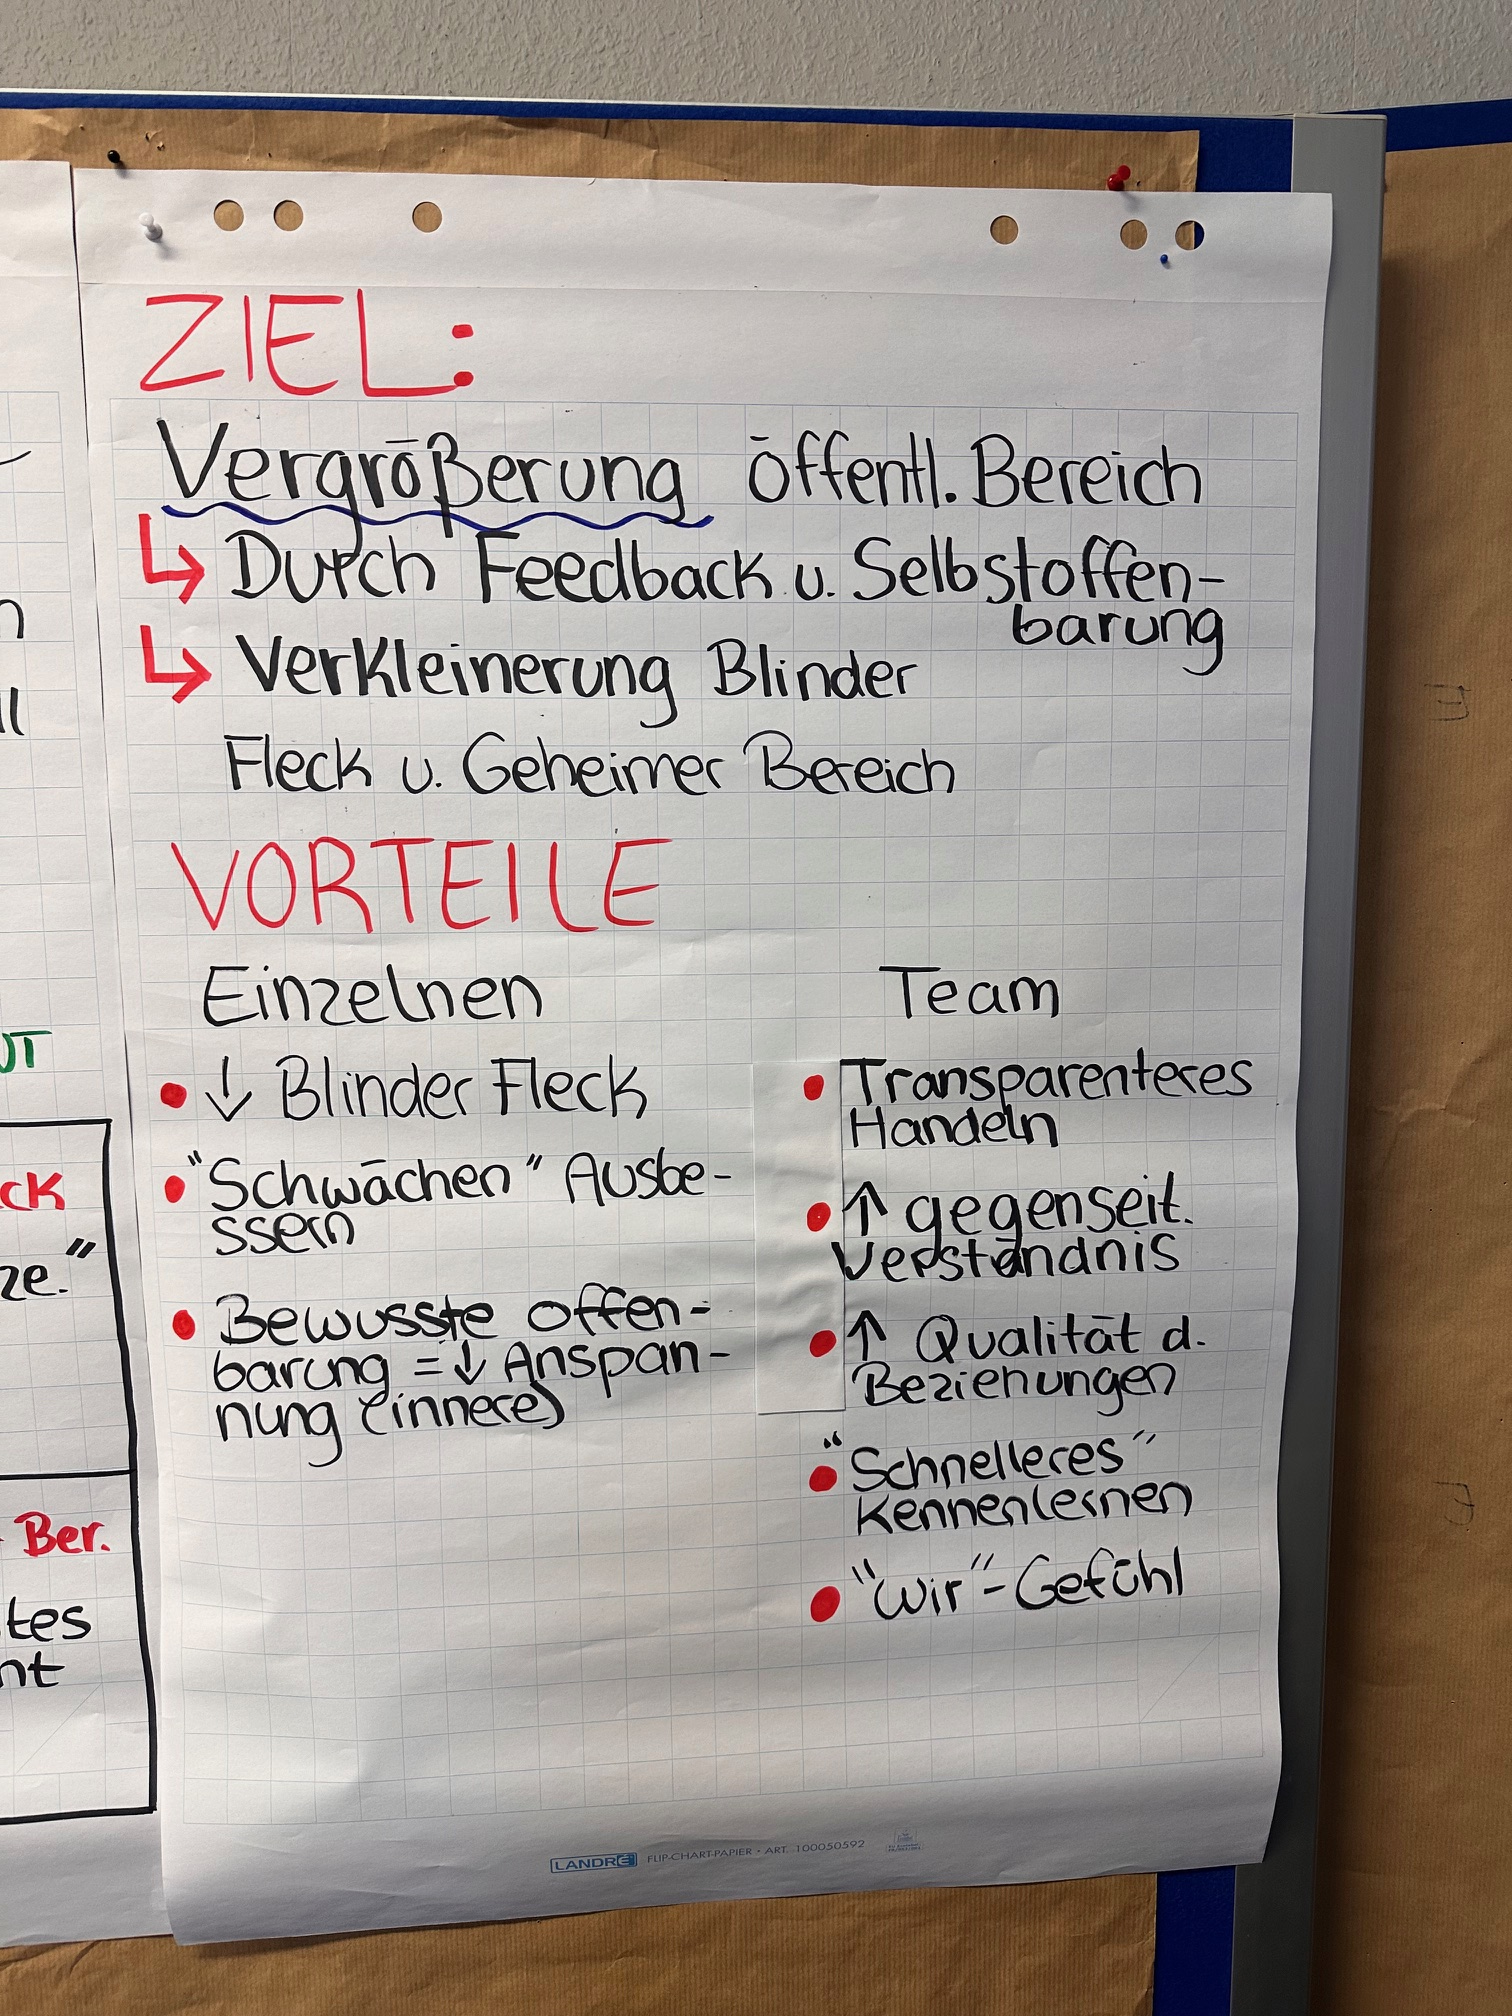 ZIEL:
Vergrößerung öffentl. Bereich
↳ Durch Feedback u. Selbstoffen-
barung
↳ Verkleinerung Blinder
Fleck u. Geheimer Bereich
VORTEILE
Einzelnen
• ↓ Blinder Fleck
• "Schwächen" Ausbe-
ssern
• Bewusste offen-
barung = ↓ Anspan-
nung (innere)
Team
• Transparenteres
Handeln
• ↑ gegenseit.
Verständnis
• ↑ Qualität d.
Beziehungen
• "Schnelleres"
Kennenlernen
• "Wir"-Gefühl
LANDRÉ FLIP-CHART-PAPIER • ART. 100050592
n
ll
UT
ck
ze."
Ber.
tes
nt